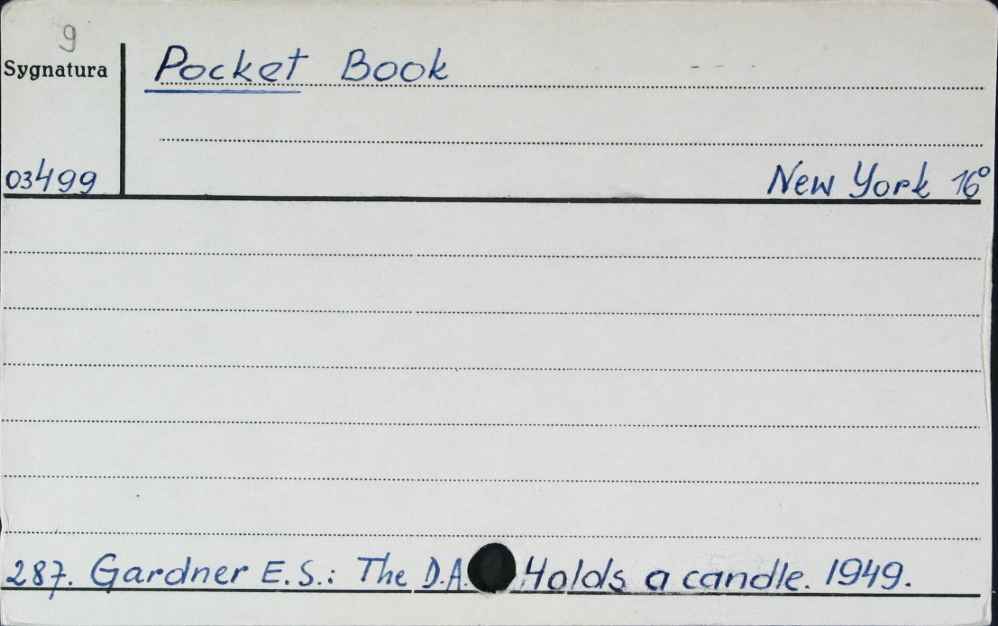 9
Sygnatura
Pocket Book
03499
New York 16°
287. Gardner E.S.: The D.A. Holds a candle. 1949.